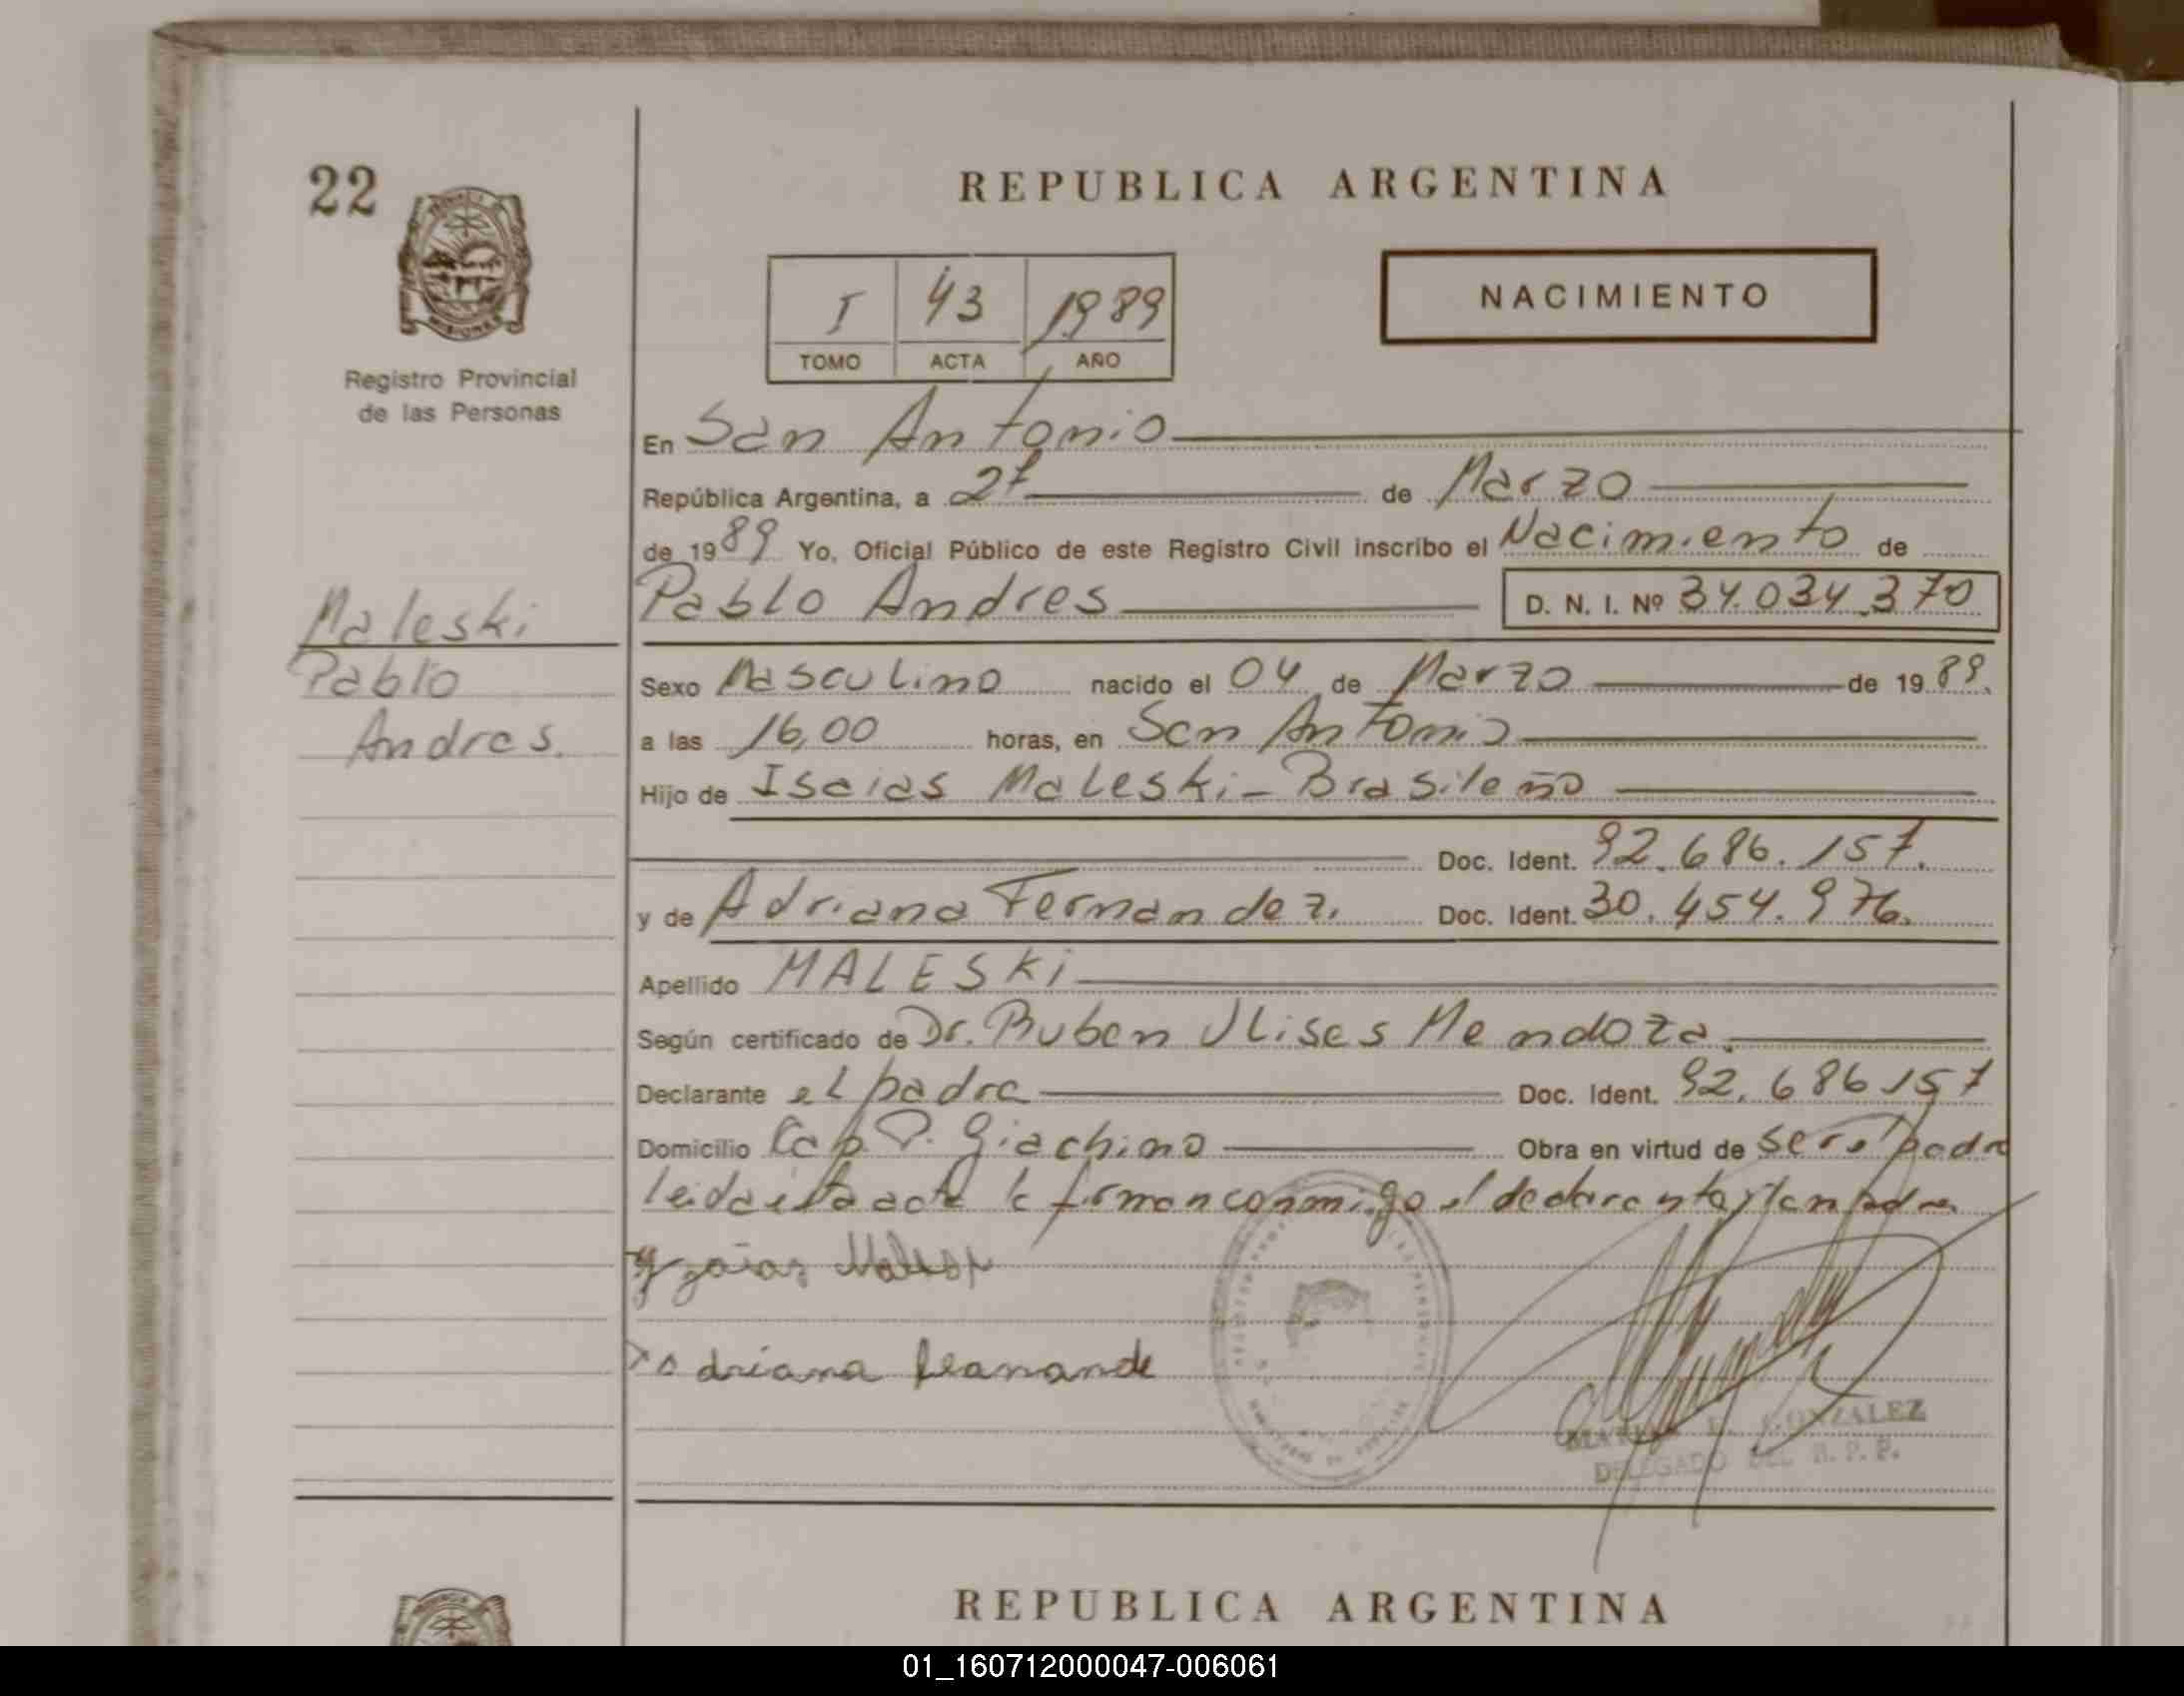 22
REPUBLICA ARGENTINA
MISIONES
I 43 1989
TOMO ACTA AÑO
NACIMIENTO
Registro Provincial
de las Personas
En San Antonio
República Argentina, a 27 de Marzo
de 1989 Yo, Oficial Público de este Registro Civil inscribo el Nacimiento de
Pablo Andres D. N. I. Nº 34.034.370
Maleski
Pablo
Andres.
Sexo Masculino nacido el 04 de Marzo de 1989.
a las 16,00 horas, en San Antonio
Hijo de Isaias Maleski - Brasileño
Doc. Ident. 92.686.157.
y de Adriana Fernandez. Doc. Ident. 30.454.976.
Apellido MALESKi
Según certificado de Dr. Ruben Ulises Mendoza.
Declarante el padre Doc. Ident. 92.686157
Domicilio Cap. P. Giachino Obra en virtud de ser el padre
leida esta acta la firman conmigo el declarante y la madre
driana
GONZALEZ
DELEGADO DEL R.P.P.
REPUBLICA ARGENTINA
01_160712000047-006061